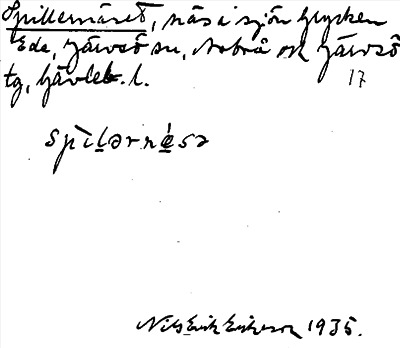 Spillernäset, näs i sjön Grycken
Ede, Järvsö sn, Arbrå ok Järvsö
tg, Gävleb. l. 17
spìlərnésə
Nils Erik Eriksson 1935.